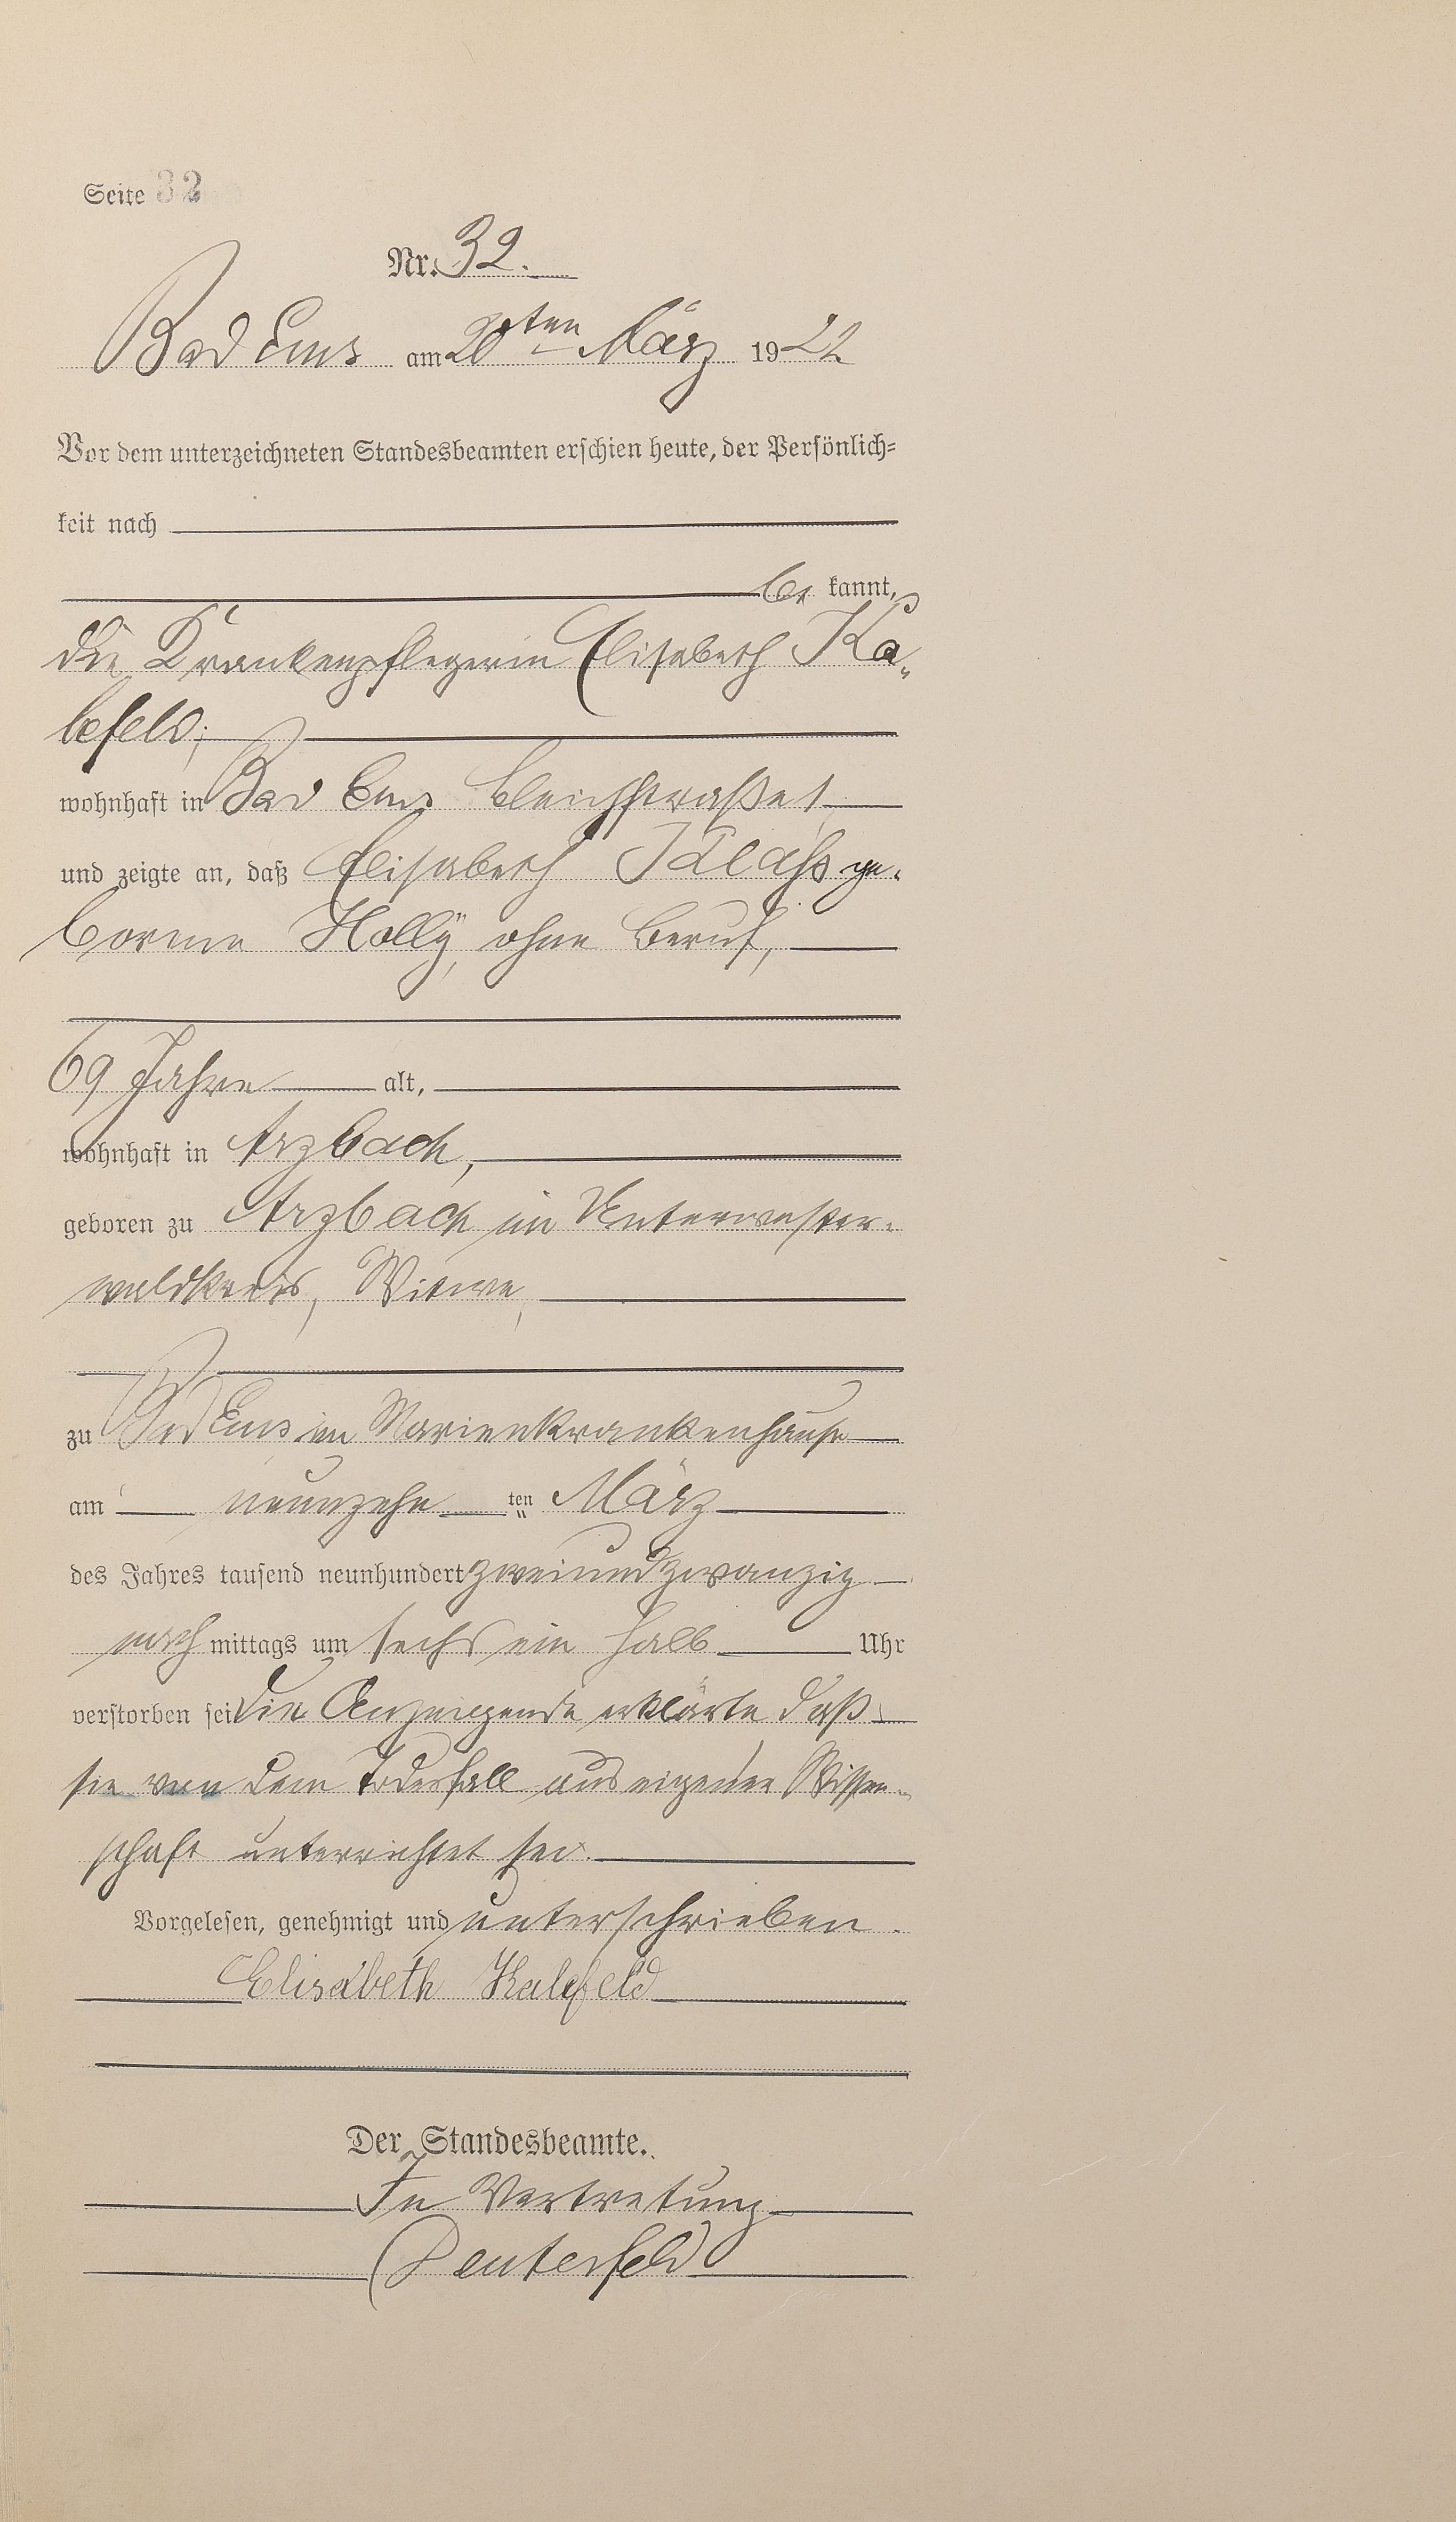 Seite 32
Nr. 32.
Bad Ems am 20ten März 1922
Vor dem unterzeichneten Standesbeamten erschien heute, der Persönlich=
keit nach
be kannt,
die Krankenpflegerin Elisabeth Ka„
lefeld,
wohnhaft in Bad Ems Bleichstraße 1
und zeigte an, daß Elisabeth Klaß ge„
borene Holly, ohne Beruf,
69 Jahre alt,
wohnhaft in Arzbach,
geboren zu Arzbach im Unterwester„
waldkreis, Witwe,
zu Bad Ems im Marienkrankenhause
am neunzehn ten März
des Jahres tausend neunhundert zweiundzwanzig
nach mittags um sechs ein halb Uhr
verstorben sei Die Anzeigende erklärte daß
sie von dem Todesfall aus eigener Wissen„
schaft unterrichtet sei.
Vorgelesen, genehmigt und unterschrieben.
Elisabeth Kalefeld
Der Standesbeamte.
In Vertretung